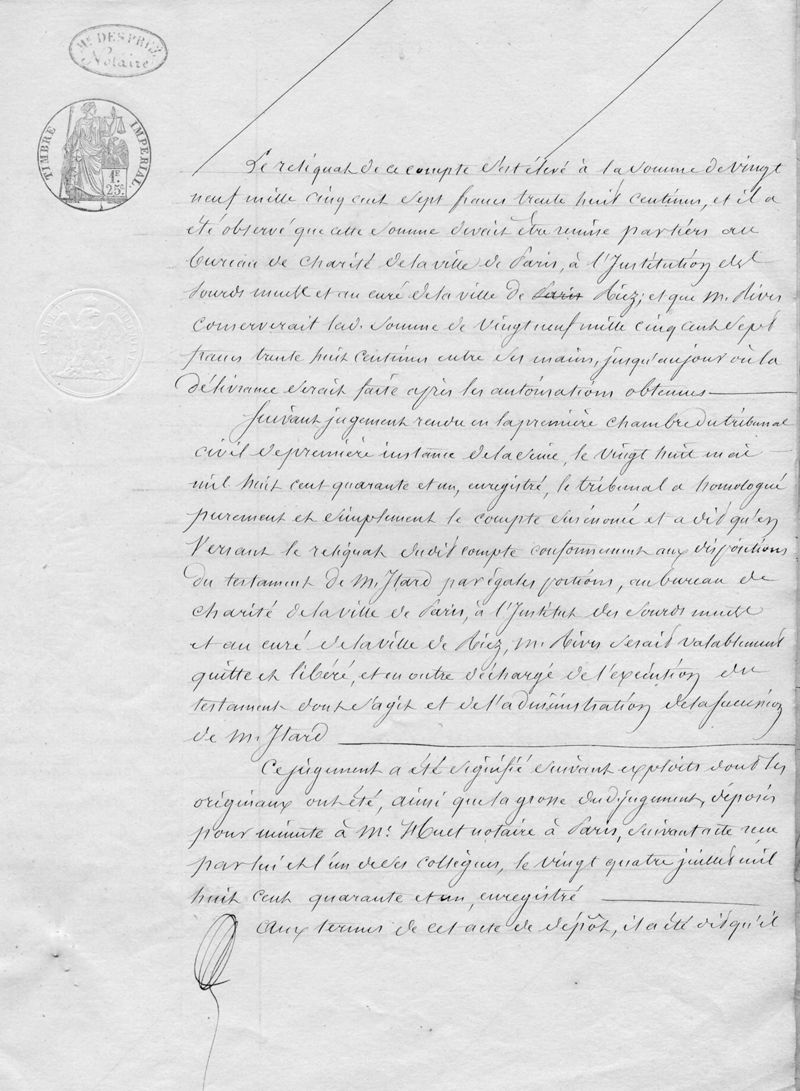 Me DESPREZ
Notaire
TIMBRE IMPERIAL
1F.
25c.
Le reliquat de ce compte s'est élevé à la somme de vingt
neuf mille cinq cent sept francs trente huit centimes, et il a
été observé que cette somme devait être remise par tiers au
bureau de charité de la ville de Paris, à l'Institution des
Sourds muets et au curé de la ville de Paris Riez; et que M. Rives
conserverait lad. somme de vingt neuf mille cinq cent sept
francs trente huit centimes entre ses mains, jusqu'au jour où la
délivrance serait faite après les autorisations obtenues
Suivant jugement rendu en la première chambre du tribunal
civil de première instance de la Seine, le vingt huit mai
mil huit cent quarante et un, enregistré, le tribunal a homologué
purement et simplement le compte susénoncé et a dit qu'en
versant le reliquat dudit compte conformément aux dispositions
du testament de M. Itard par égales portions, au bureau de
charité de la ville de Paris, à l'Institut des Sourds muets
et au curé de la ville de Riez, M. Rives serait valablement
quitte et libéré, et en outre déchargé de l'exécution du
testament dont s'agit et de l'administration de la succession
de M. Itard
Ce jugement a été signifié suivant exploits dont les
originaux ont été, ainsi que la grosse dudit jugement, déposés
pour minute à Me. Huet notaire à Paris, suivant acte reçu
par lui et l'un de ses collègues, le vingt quatre juillet mil
huit cent quarante et un, enregistré
Aux termes de cet acte de dépôt, il a été dit qu'il